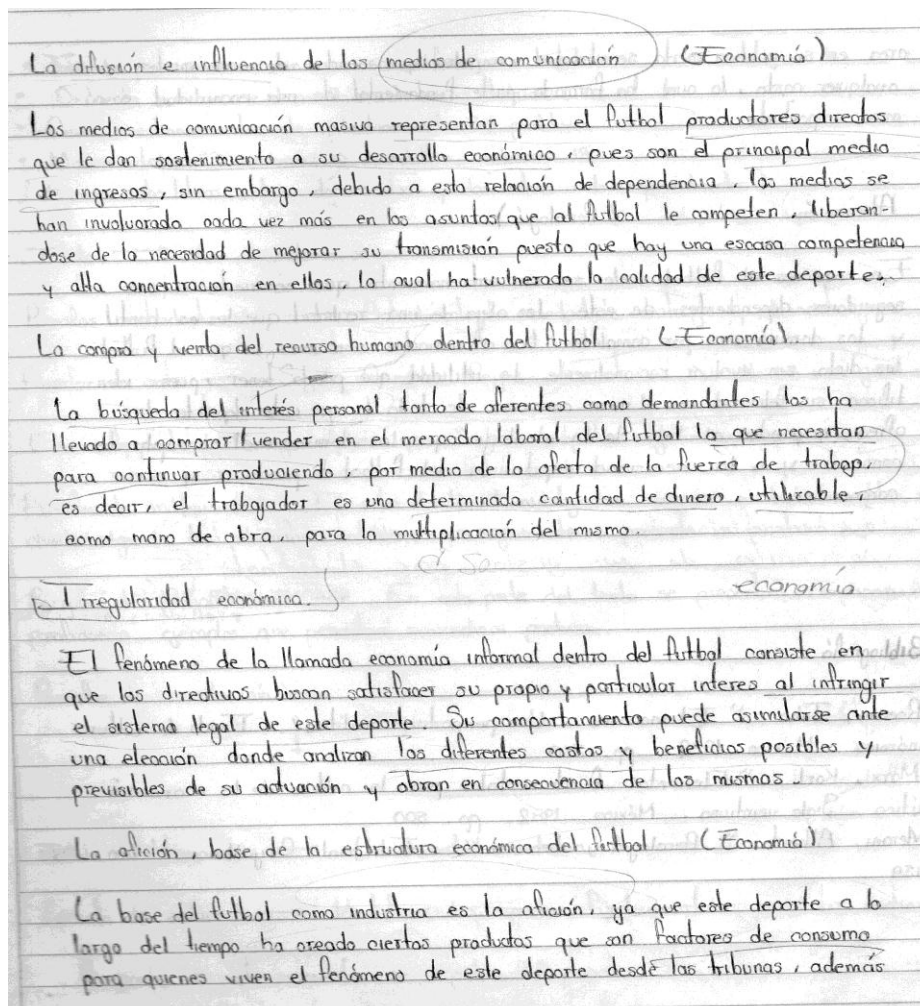 La difusión e influencia de los medios de comunicación (Economía)
Los medios de comunicación masiva representan para el futbol productores directos
que le dan sostenimiento a su desarrollo económico, pues son el principal medio
de ingresos, sin embargo, debido a esta relación de dependencia, los medios se
han involucrado cada vez más en los asuntos que al futbol le competen, liberan-
dose de la necesidad de mejorar su transmisión puesto que hay una escasa competencia
y alta concentración en ellos, lo cual ha vulnerado la calidad de este deporte.
La compra y venta del recurso humano dentro del futbol (Economía)
La búsqueda del interés personal tanto de oferentes como demandantes los ha
llevado a comprar/vender en el mercado laboral del futbol lo que necesitan
para continuar produciendo, por medio de la oferta de la fuerza de trabajo,
es decir, el trabajador es una determinada cantidad de dinero, utilizable,
como mano de obra, para la multiplicación del mismo.
Irregularidad económica. economía
El fenómeno de la llamada economía informal dentro del futbol consiste en
que los directivos buscan satisfacer su propio y particular interes al infringir
el sistema legal de este deporte. Su comportamiento puede asimilarse ante
una elección donde analizan los diferentes costos y beneficios posibles y
previsibles de su actuación y obran en consecuencia de los mismos.
La afición, base de la estructura económica del futbol (Economía)
La base del futbol como industria es la afición, ya que este deporte a lo
largo del tiempo ha creado ciertos productos que son factores de consumo
para quienes viven el fenómeno de este deporte desde las tribunas, además